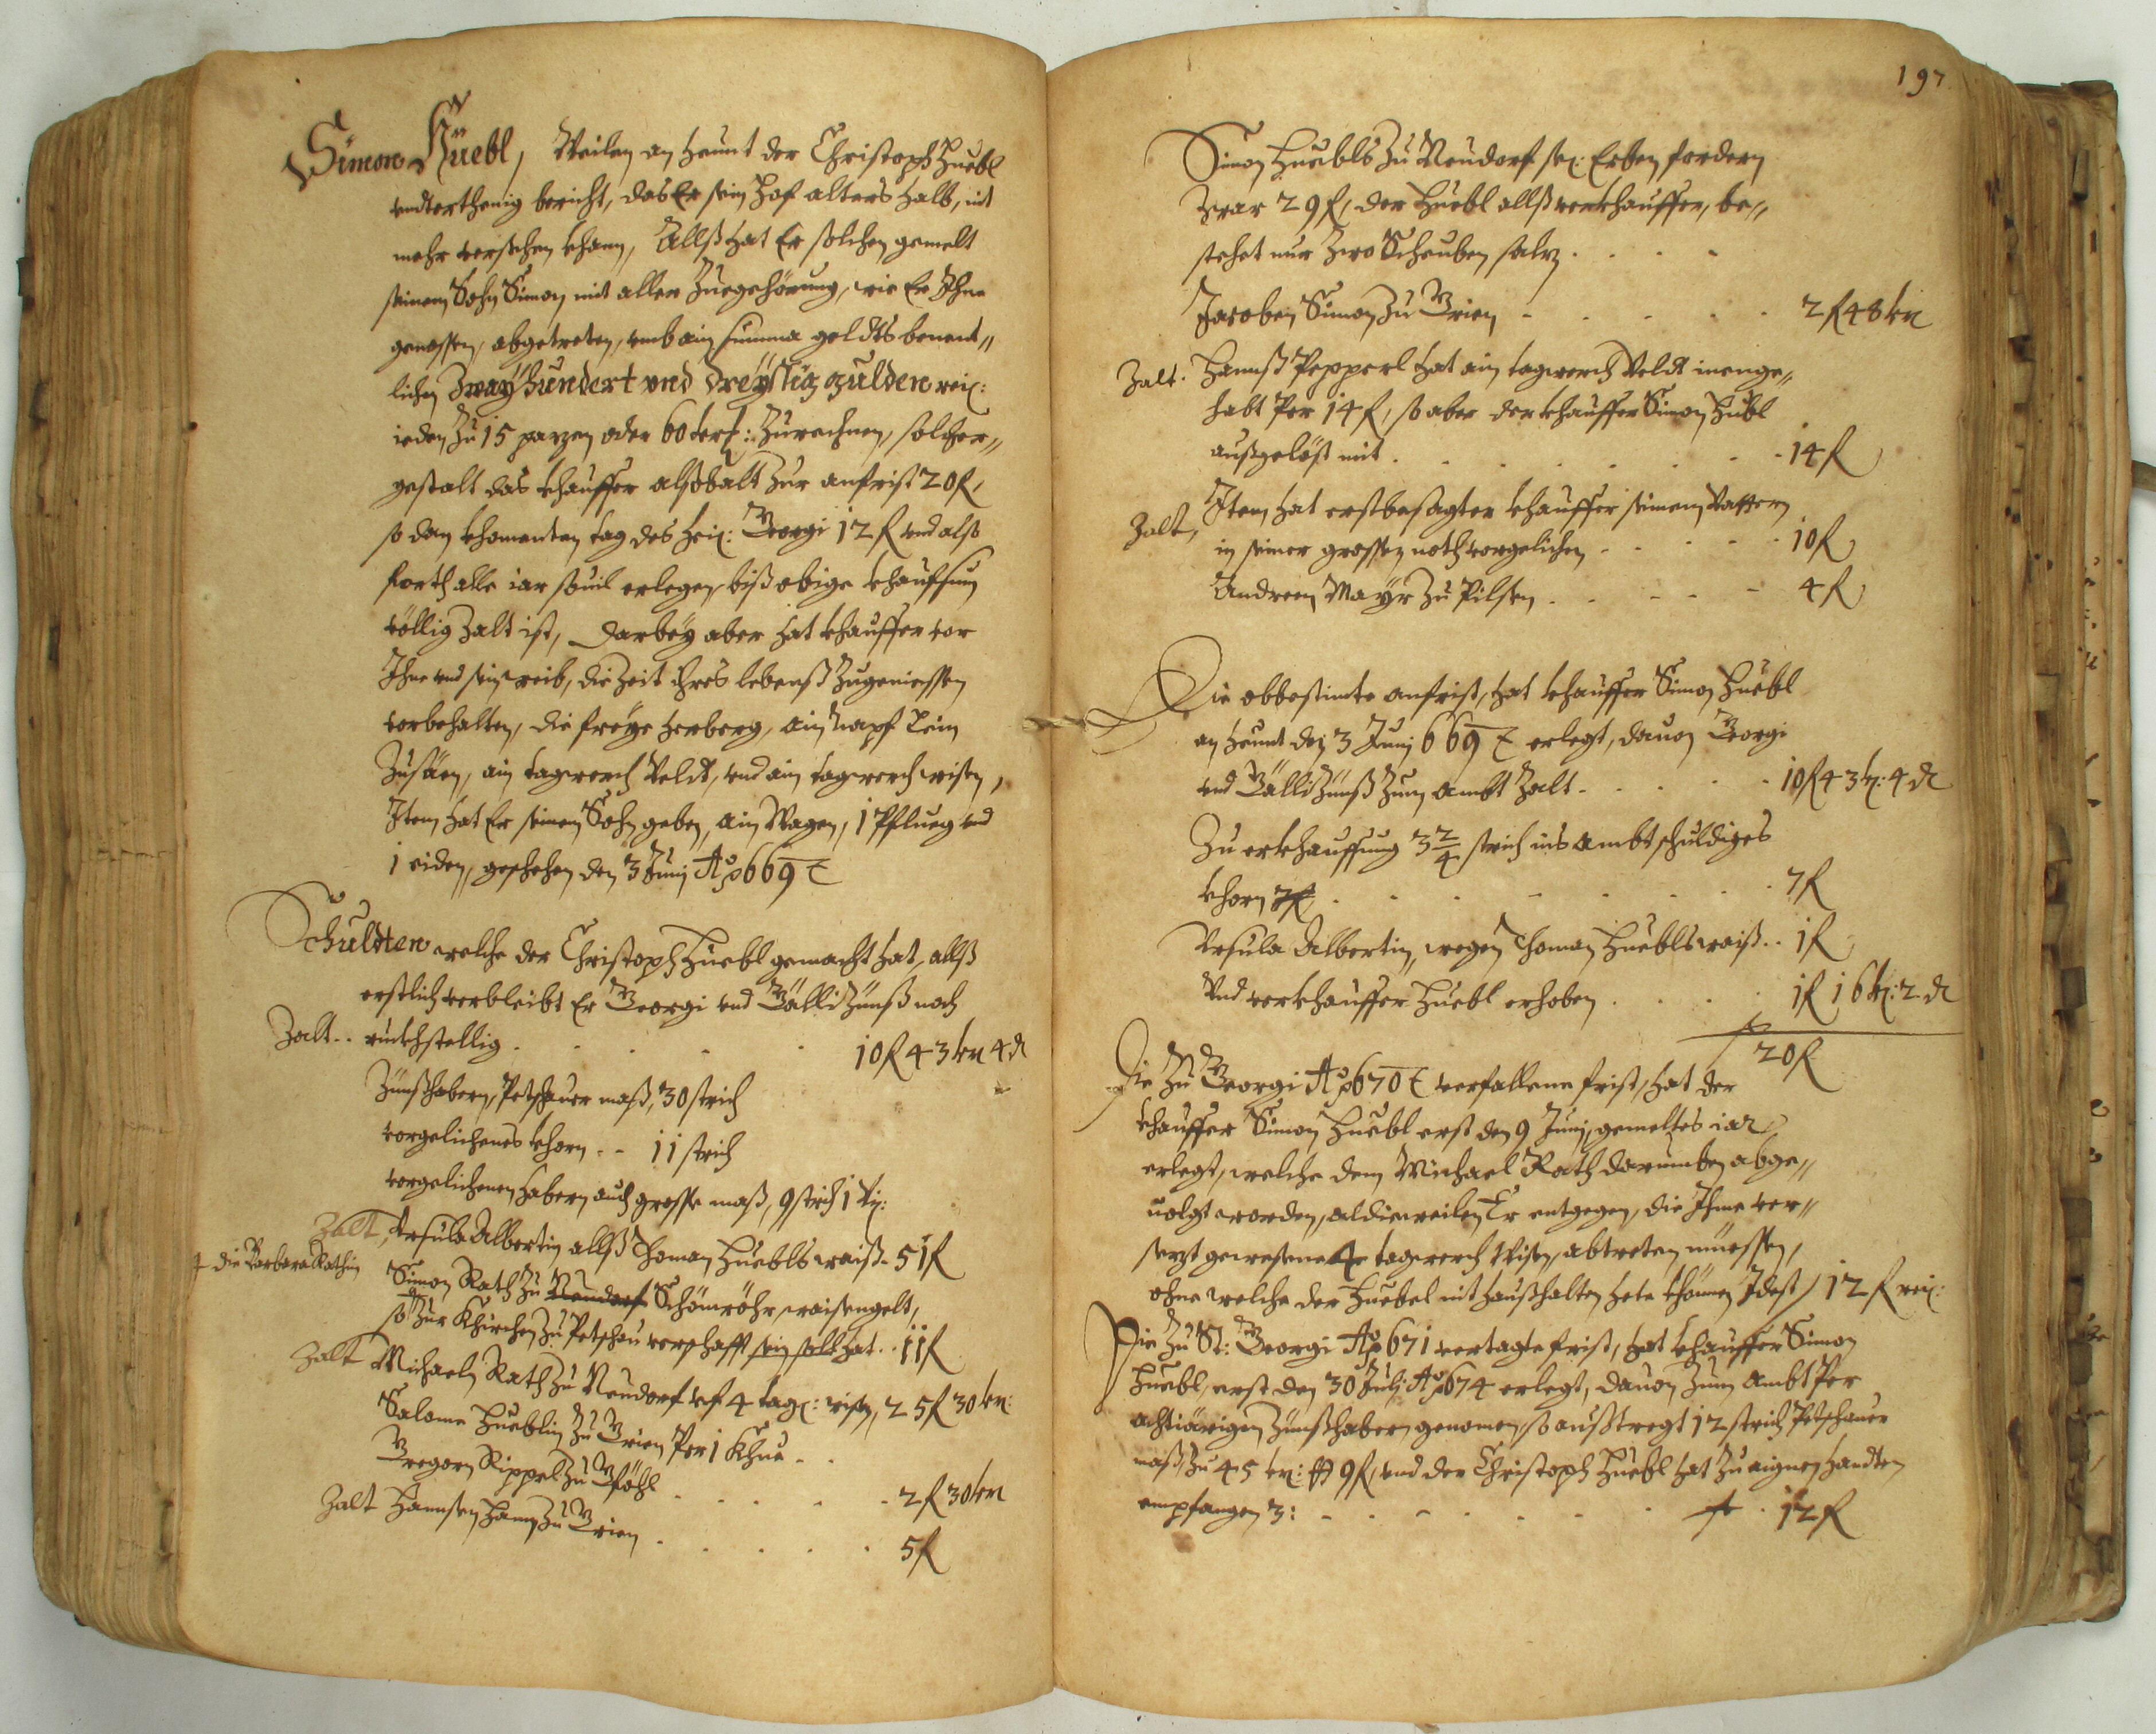 Simon Hüebl, Weilen an heunt der Christoph Huebl
vndterthenig bericht, das Er sein Hof alters halb, nit
mehr versehen khann, Allß hat Er solchen gemelt
seinem Sohn Simon mit aller Zuegehörung, wie Er Ihne
genossen, abgetreten, vmb ain summa geldts benent„
lichen Zwayhundert vnd dreyssig gulden rei:
ieden Zu 15 pazen oder 60 kr: Zurechnen, solcher„
gestalt das khauffer alsobalt Zur anfrist 20 f,
so dan khomenten tag des hei: Georgi 12 f vnd also
forth alle iar souil erlegen, biß obige khaufsum
völlig Zalt ist, Darbey aber hat khauffer vor
Ihne vnd sein weib, die Zeit ihres lebenß Zugeniessen
vorbehalten, die freye herberg, ain napf Lein
Zusäen, ain tagwerch Veldt, vnd ain tagwerch wisen,
Item hat Er seinem Sohn geben, ain Wagen, 1 Pflueg vnd
1 eiden, geschehen den 3 Junij Ao 669
Schuldten welche der Christoph Huebl gemacht hat, allß
erstlich verbleibt Er Georgi vnd Gälli Zünß noch
Zalt.. ruckhstellig . . . . 10 f 43 kr 4 d
Zünßhabern, Petschauer maß, 30 strich
vorgelichenes khorn .. 11 strich
vorgelichenen habern auch grosse maß, 9 strich 1 Vi:
Zalt, Vrsula Albertin allß Thoman Hueblswaiß . 51 f
+ die Barbara Rathin
Simon Rath Zu Neudorf Schömröhr, waisengelt,
so Zur Khirchen Zu Petschau verschafft sein soll hat .. 11 f
Zalt Michaeln Rath Zu Neudorf vf 4 tag: wisen, 25 f 30 kr:
Salome Hueblin Zu Grien Per 1 Khue . .
Gregorn Rippel Zu Gföhl . . . . . 2 f 30 kr
Zalt Hannsen Hamp Zu Grien . . . . 5 f
197
Simon Huebls Zu Neudorf se: Erben fordern
Zwar 29 f, der Huebl allß verkhauffer, be„
stehet nur Zwo Scheuben salz . . . .
Jacoben Simon Zu Grien . . . . . 2 f 48 kr
Zalt. Hannß Pepperl hat ain tagwerch Veldt innenge„
habt Per 14 f, so aber der khauffer Simon Hübl
außgelöst mit . . . . . . . 14 f
Zalt, Item hat erstbesagter khauffer seinem Vattern
in seiner grossen noth vorgelichen . . . . . 10 f
Andreen Mayr Zu Pilsen . . . . 4 f
Die obbestimte anfrist, hat khauffer Simon Huebl
an heunt den 3 Junij 669 erlegt, dauon Georgi
vnd Gälli Zünß Zum Ambt Zalt . . . . . 10 f 43 k: 4 d
Zu erkhauffung 3 2/4 strich ins Ambt schuldiges
khorn 7 f . . . . . . . 7 f
Vrsula Albertin, wegen Thoman Hueblswaiß .. 1 f
Vnd verkhauffer Huebl erhoben . . . . 1 f 16 k: 2 d
20 f
Die Zu Georgi Ao 670 verfallene frist, hat der
khauffer Simon Huebl erst den 9 Junij, gemeltes iar
erlegt, welche dem Michael Rath darumben abge„
uolgt worden, aldieweilen Er entgegen, die Ihme ver„
sezt gewesene 4 tagwerch Wisen, abtreten müessen,
ohne welche der Huebel nit haußhalten hete khönnen Idest / 12 f rei:
Die Zu St: Georgi Ao 671 vertagte frist, hat khauffer Simon
Huebl, erst den 30 Julij Ao 674 erlegt, dauon Zum Ambt Per
achtiärigen Zünßhabern genomen, so außtregt 12 strich Petschauer
maß Zu 45 kr: 9 f, vnd der Christoph Huebl hat Zu aignen handten
empfangen 3: . . . . . . . 12 f